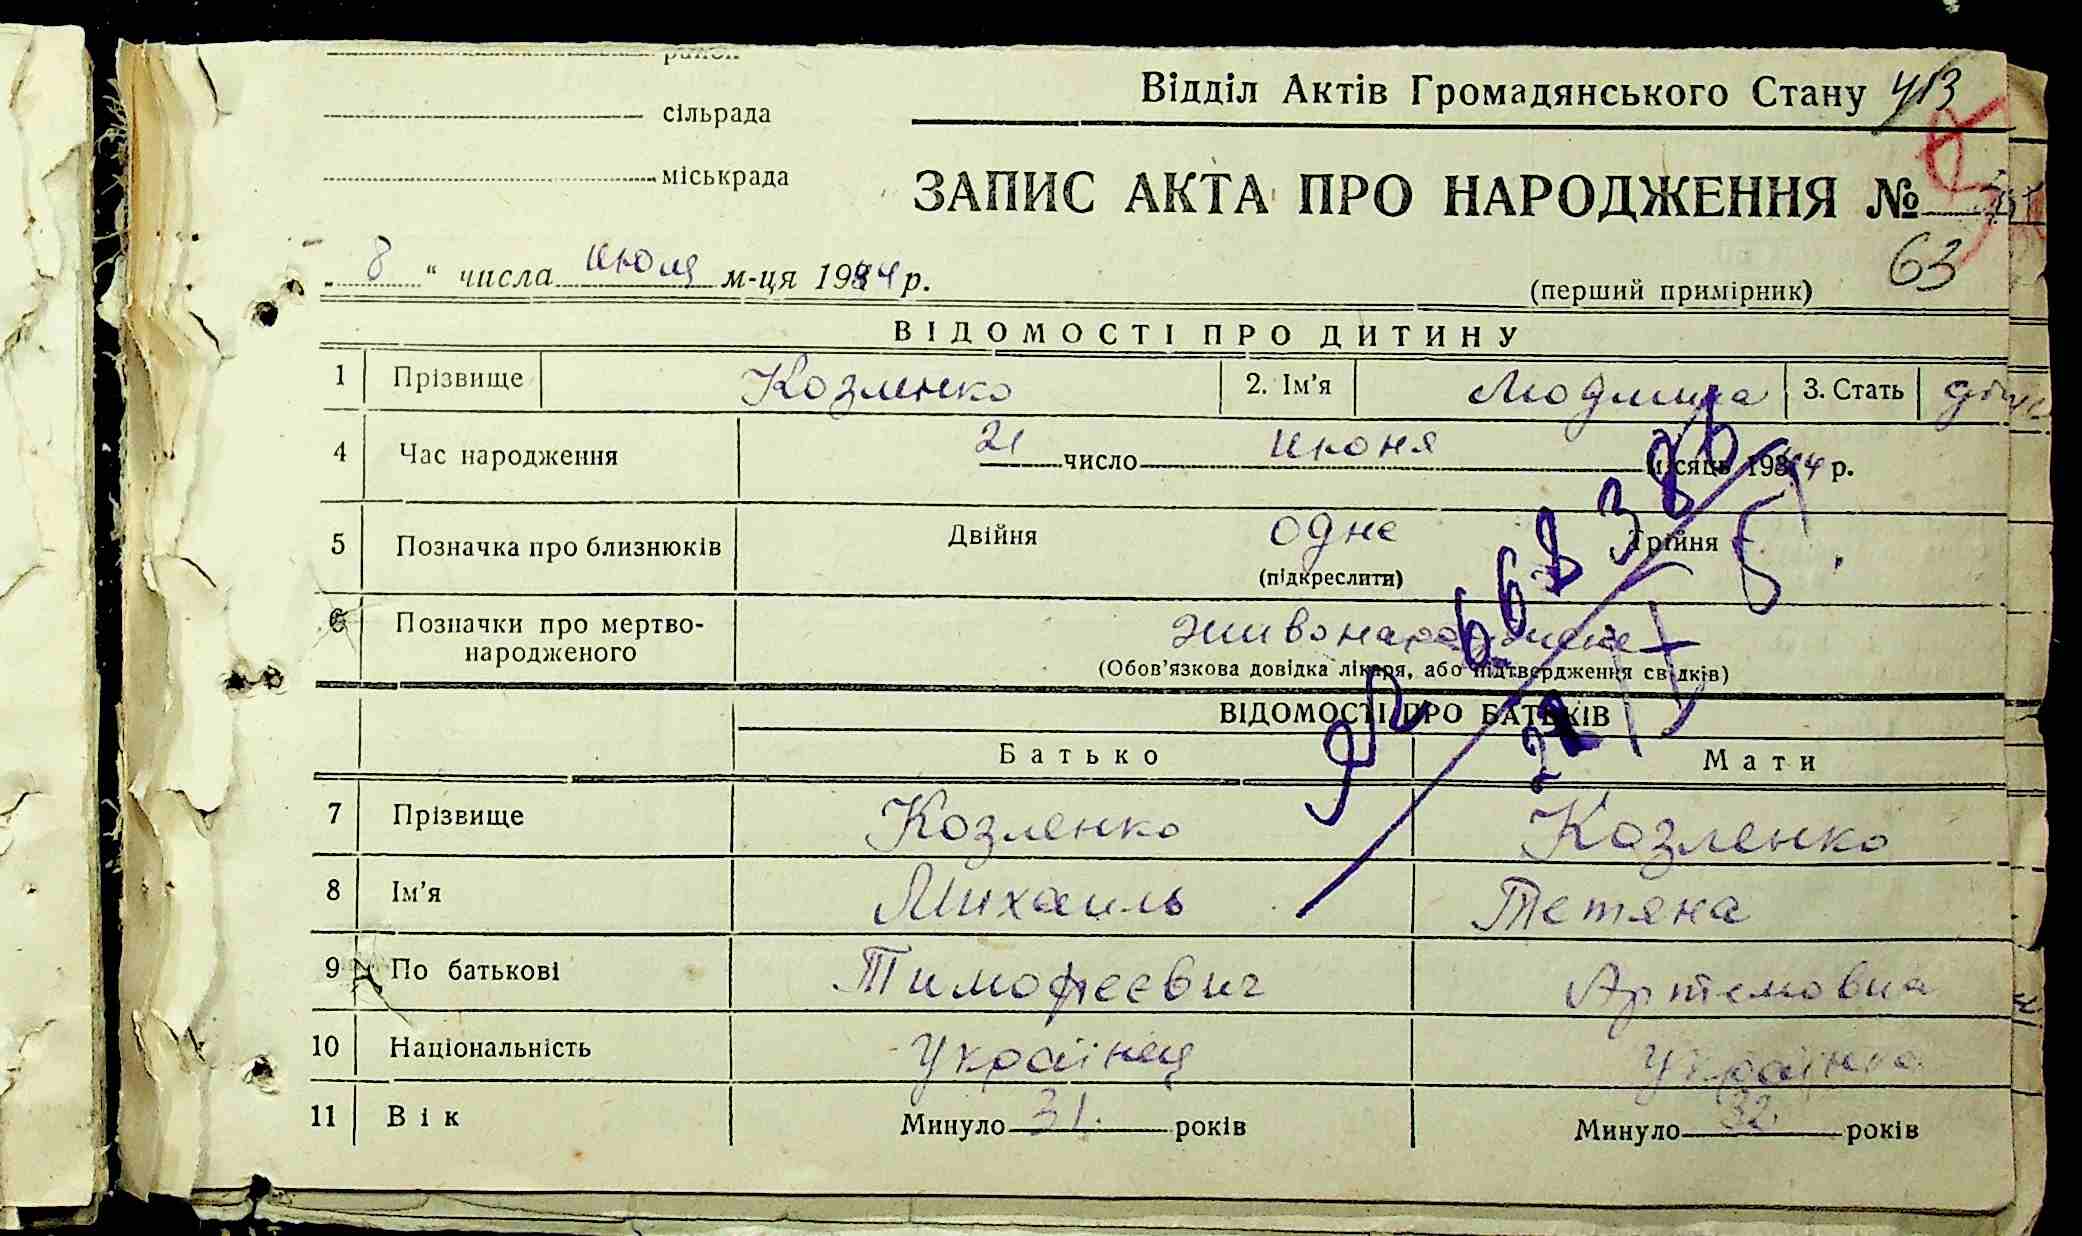 район
сільрада
міськрада
Відділ Актів Громадянського Стану
ЗАПИС АКТА ПРО НАРОДЖЕННЯ №
63
„8“ числа июля м-ця 1944 р.
(перший примірник)
ВІДОМОСТІ ПРО ДИТИНУ
1 Прізвище Козленко 2. Ім’я Людмила 3. Стать
4 Час народження 21 число июня місяць 1944 р.
5 Позначка про близнюків Двійня одне Трійня
(підкреслити)
6 Позначки про мертво-
народженого живонароджене
(Обов’язкова довідка лікаря, або підтвердження свідків)
ВІДОМОСТІ ПРО БАТЬКІВ
Батько Мати
7 Прізвище Козленко Козленко
8 Ім’я Михаиль Тетяна
9 По батькові Тимофеевич Артемовна
10 Національність Українец Українка
11 Вік Минуло 31. років Минуло 32. років